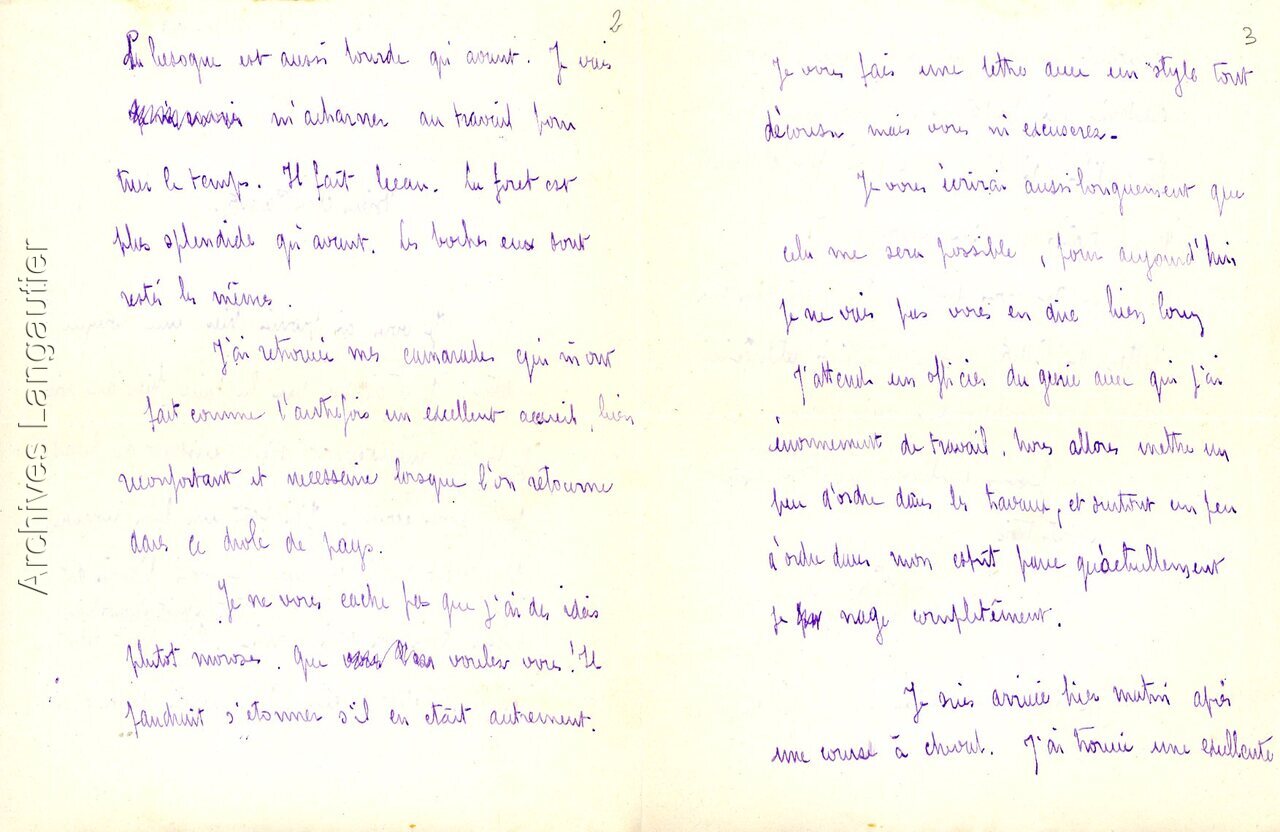 2
La besogne est aussi lourde qu'avant. Je vais
m'acharner au travail pour
tuer le temps. Il fait beau. La foret est
plus splendide qu'avant. Les boches eux sont
restés les mêmes.
J'ai retrouvé mes camarades qui m'ont
fait comme l'autrefois un excellent accueil, bien
reconfortant et necessaire lorsque l'on retourne
dans ce drole de pays.
Je ne vous cache pas que j'ai des idées
plutot moroses. Que voulez vous! Il
faudrait s'etonner s'il en etait autrement.
3
Je vous fais une lettre avec un style tout
décousu mais vous m'excuserez.
Je vous écrirai aussi longuement que
cela me sera possible, pour aujourd'hui
je ne vais pas vous en dire bien long
J'attends un officier du genie avec qui j'ai
énormement de travail. Nous allons mettre un
peu d'ordre dans les travaux, et surtout un peu
d'ordre dans mon esprit parce qu'actuellement
je nage complètement.
Je suis arrivé hier matin après
une course à cheval. J'ai trouvé une excellente
Archives Langautier